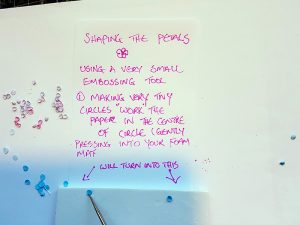 SHAPING THE PETALS
USING A VERY SMALL
EMBOSSING TOOL
① MAKING VERY TINY
CIRCLES "WORK" THE
PAPER IN THE CENTRE
OF CIRCLE (GENTLY
PRESSING INTO YOUR FOAM
MAT
WILL TURN INTO THIS